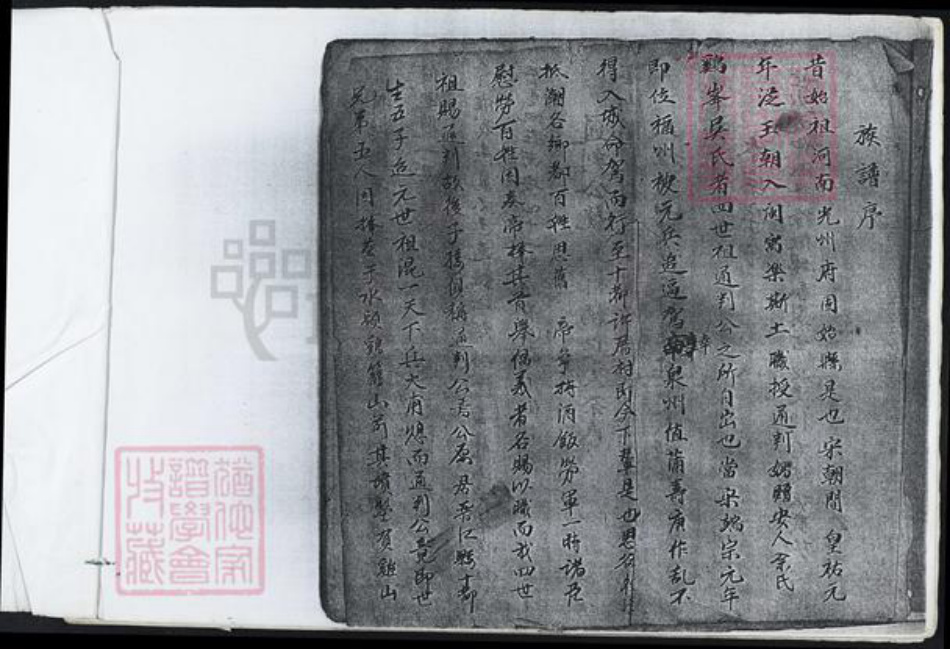 族譜序
昔始祖河南光州府固始縣是也宋朝間皇祐元
年從王朝入閩寓樂斯土職授通判妣贈安人余氏
鷄峯吳氏者四世祖通判公之所自出也當宋端宗元年
即位福州被元兵追逼駕幸泉州值蒲壽庚作亂不
得入城命駕而行至十都許厝村即今下輦是也思
抵潮各鄉都百姓思舊帝爭持酒飯勞軍一時諸臣
慰勞百姓因奏帝擇其首舉倡義者各賜以職而我四世
祖賜通判故後子孫俱稱通判公焉公居晉江縣十都
生五子迨元世祖混一天下兵火甫熄而通判公竟即世
兄弟五人因擇葬于水頭鷄籠山前其墳塋賀雞山
譜學會
收藏